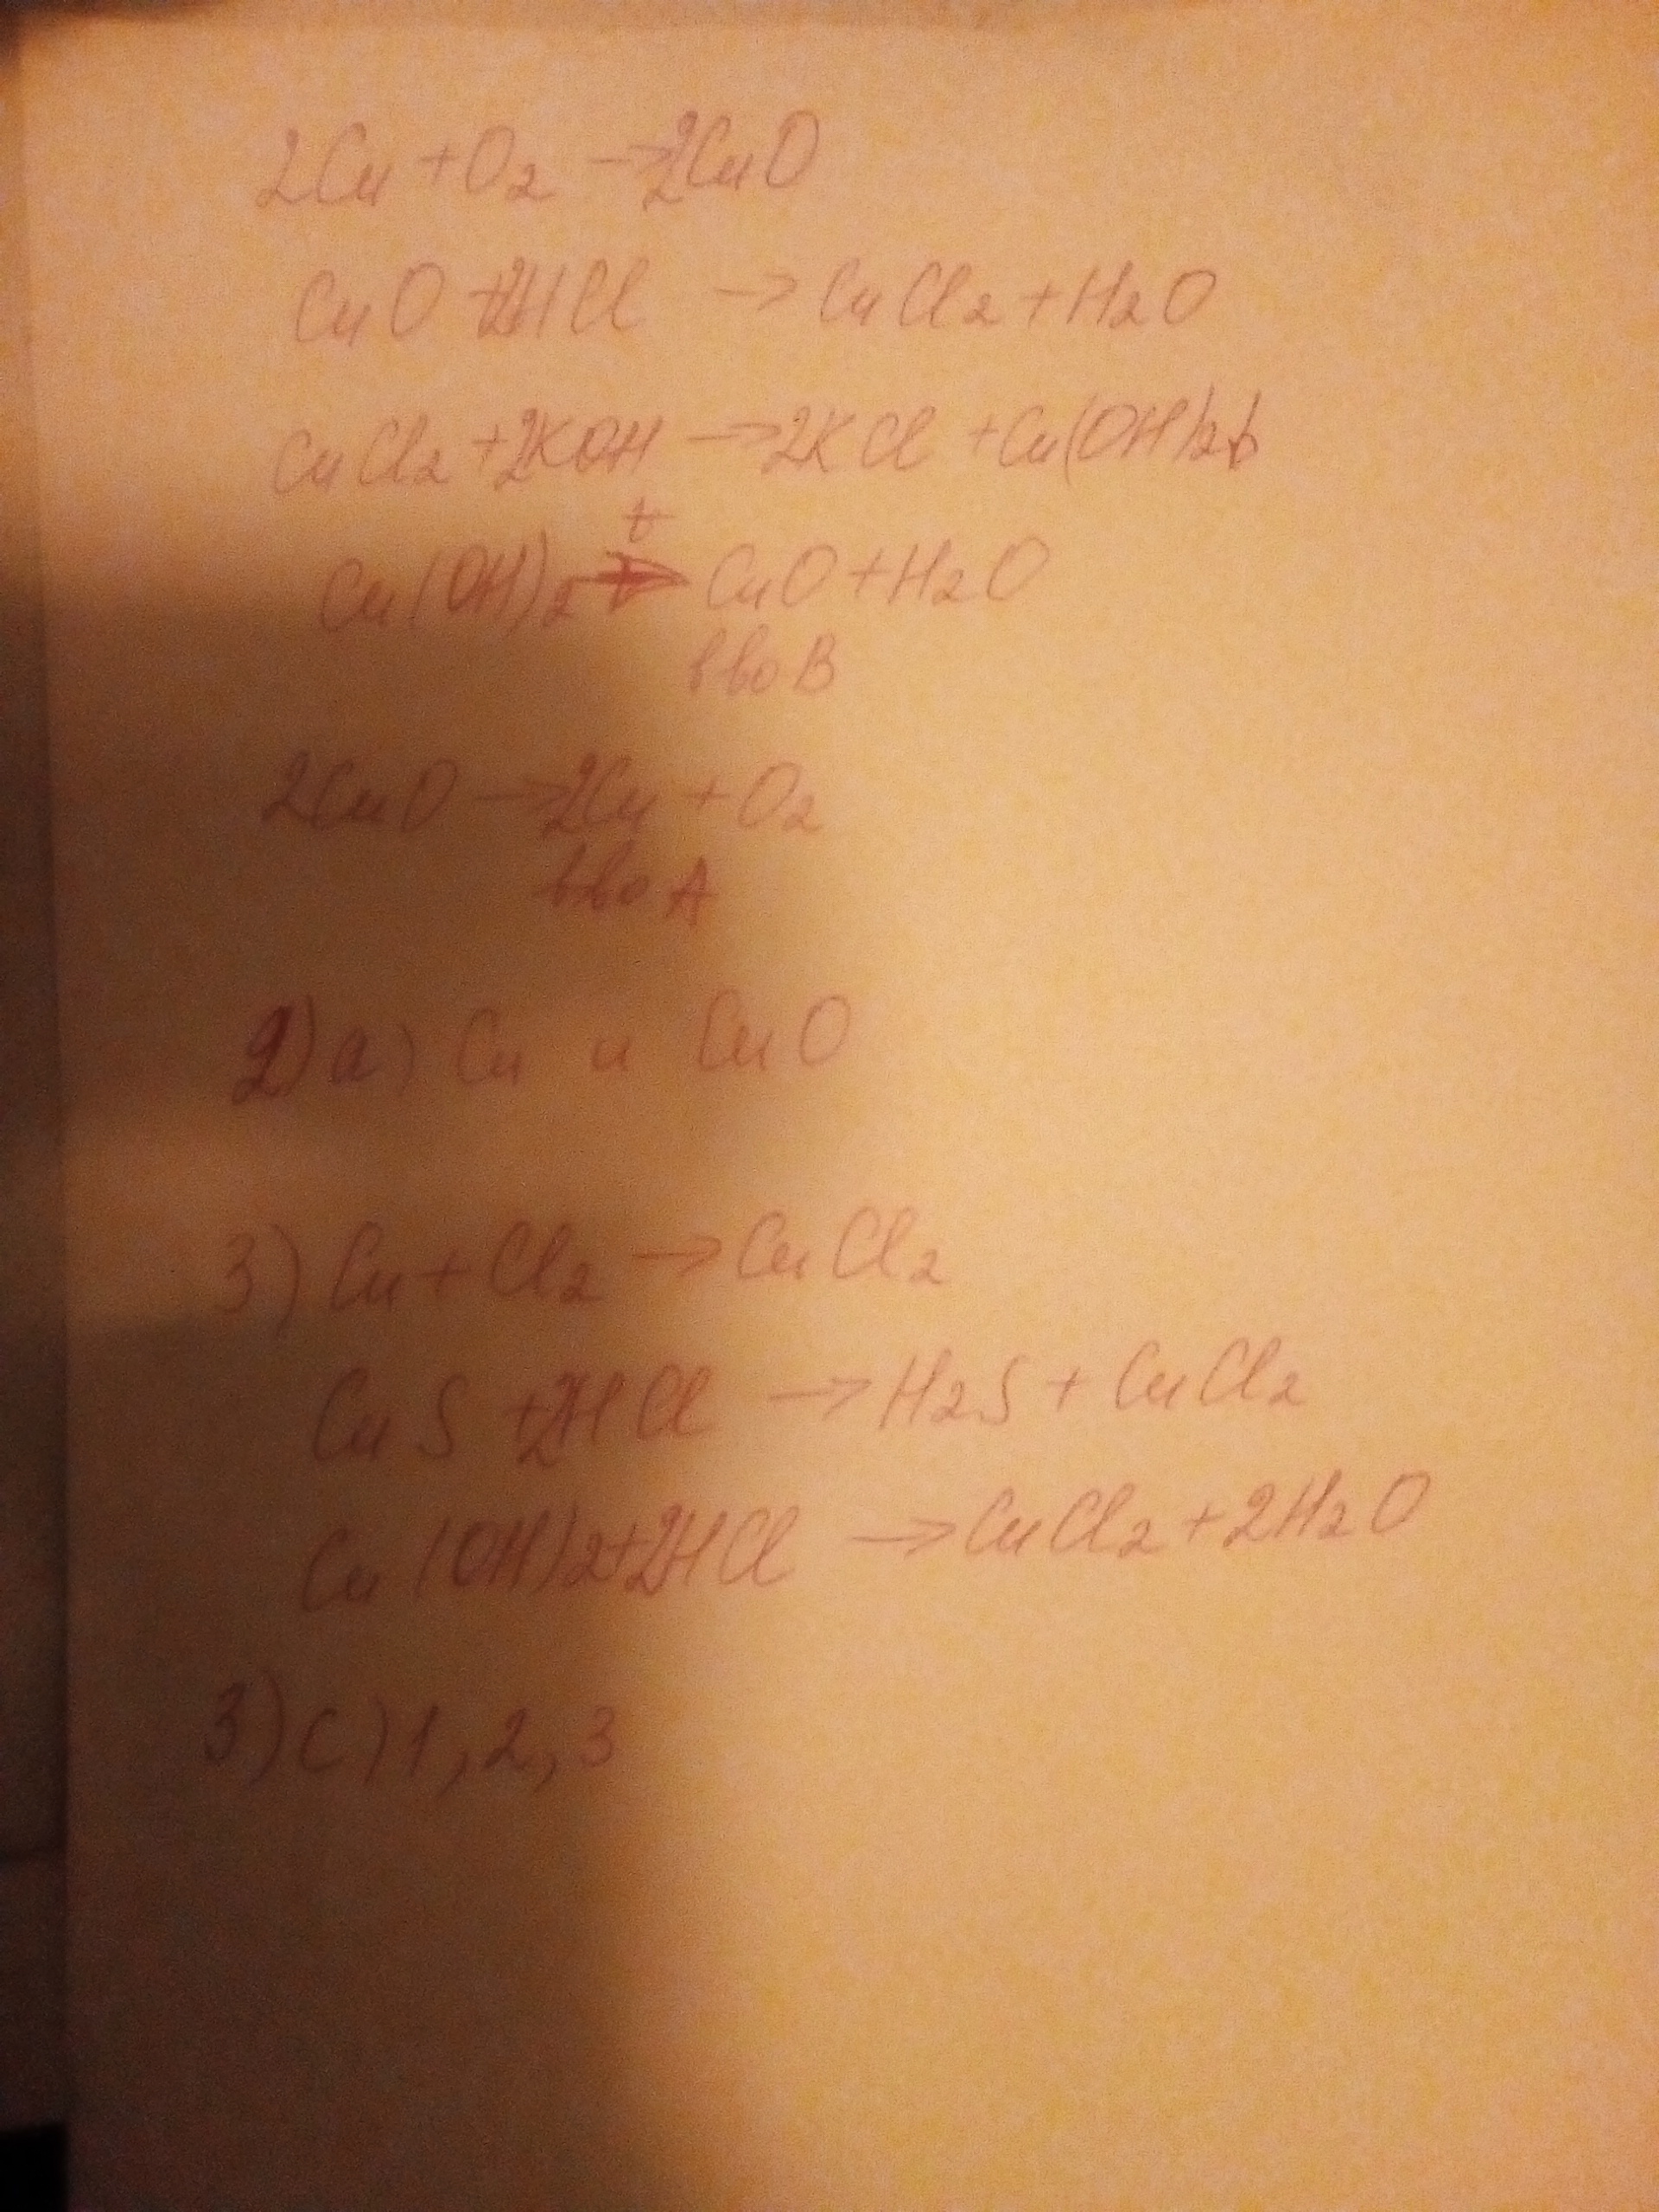 2Cu + O2 → 2CuO
CuO + 2HCl → CuCl2 + H2O
CuCl2 + 2KOH → 2KCl + Cu(OH)2↓
t
Cu(OH)2 → CuO + H2O
в-во В
2CuO → 2Cu + O2
в-во А
2) а) Cu и CuO
3) Cu + Cl2 → CuCl2
CuS + 2HCl → H2S + CuCl2
Cu(OH)2 + 2HCl → CuCl2 + 2H2O
3) С) 1, 2, 3